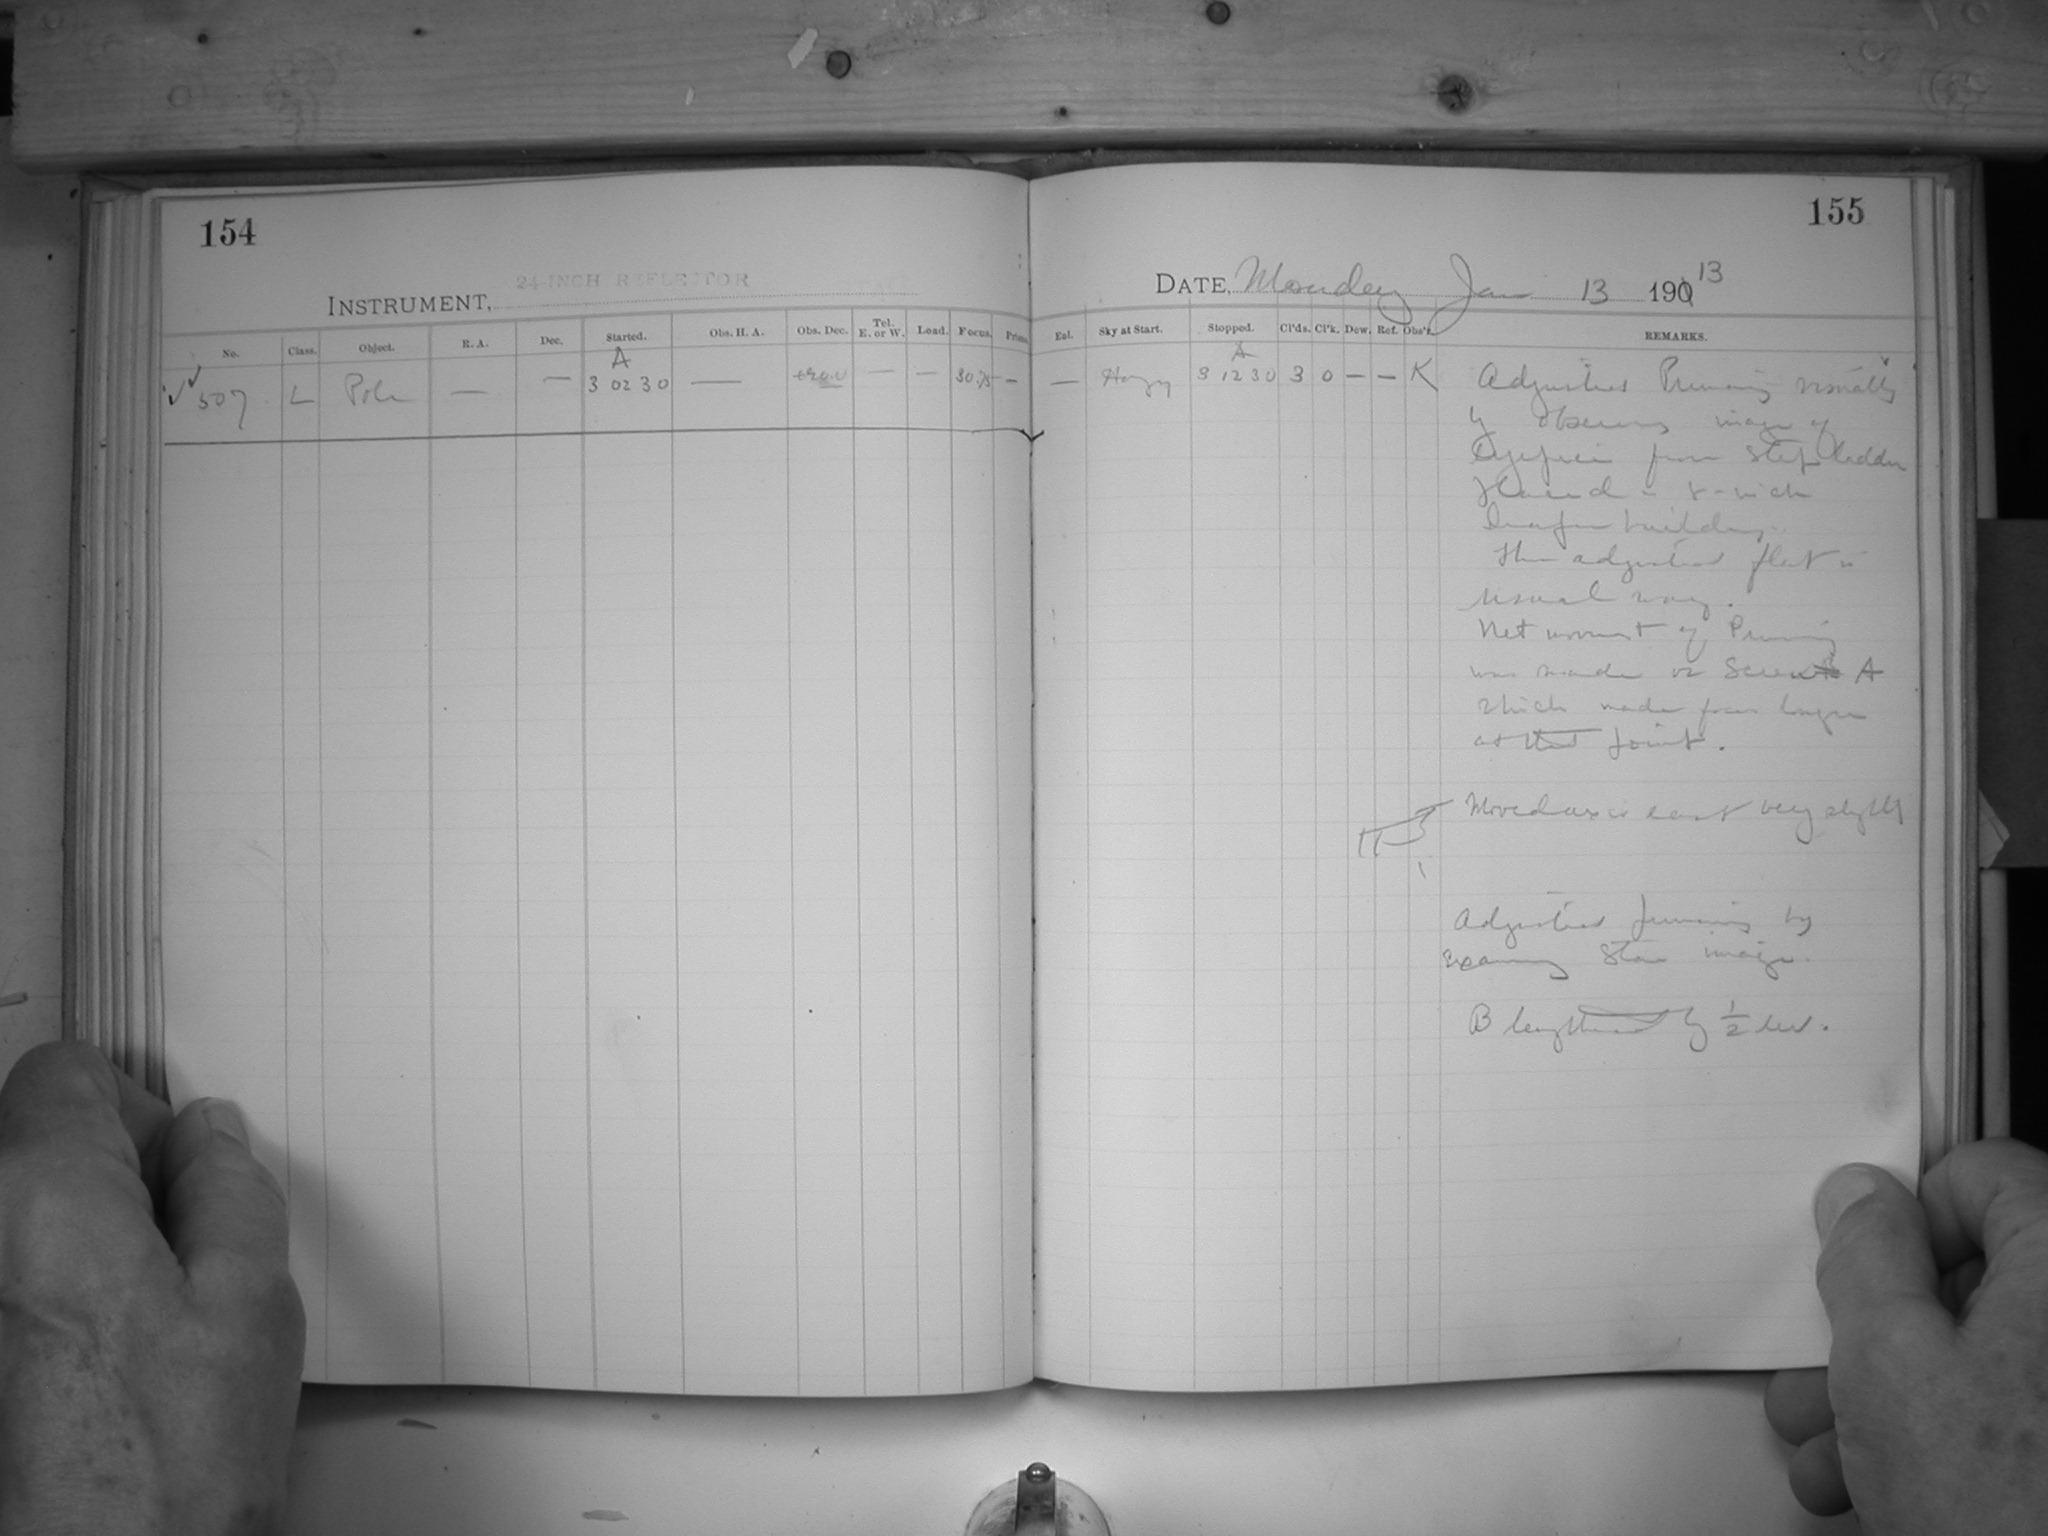 154
24-INCH REFLECTOR
INSTRUMENT,
No. Class. Object. R. A. Dec. Started. Obs. H. A. Obs. Dec. Tel. E. or W. Load. Focus. Prism.
A
507 L Pole — — 3 02 30 — — — 30.75 —
155
DATE, Monday Jan 13 190 13
Eol. Sky at Start. Stopped. Cl'ds. Cl'k. Dew. Ref. Obs'r. REMARKS.
A
— Hazy 3 12 30 3 0 — — K
Adjusted Primary visually
by observing image of
Eyepiece from Step ladder
placed in 8-inch
building.
Then adjusted flat in
usual way.
Net movement of Primary
was made on Screw A
which made focus longer
at that point.
Moved axis east very slightly
Adjusted primary by
examining Star image.
B lengthened by 1/2 rev.